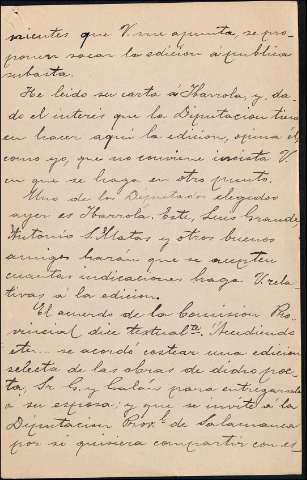 nientes que V. me apunta se pro-
ponen sacar la edición á pública
subasta.
He leido su carta á Ibarrola y, da-
do el interés que la Diputacion tiene
en hacer aquí la edicion, opina él
como yo, que no conviene insista V.
en que se haga en otro punto.
Uno de los Diputados elegidos
ayer es Ibarrola. Este, Luis Grande
Antonio S. Matas y otros buenos
amigos harán que se acepten
cuantas indicaciones haga V. rela-
tivas á la edición.
El acuerdo de la Comision Pro-
vincial dice textualte. "Accediendo
etc... se acordó costear una edicion
selecta de las obras de dicho poe-
ta, Sr. G. y Galán para entregarsela
a su esposa; y que se invite á la
Diputacion Provl. de Salamanca
por si quisiera compartir con es-